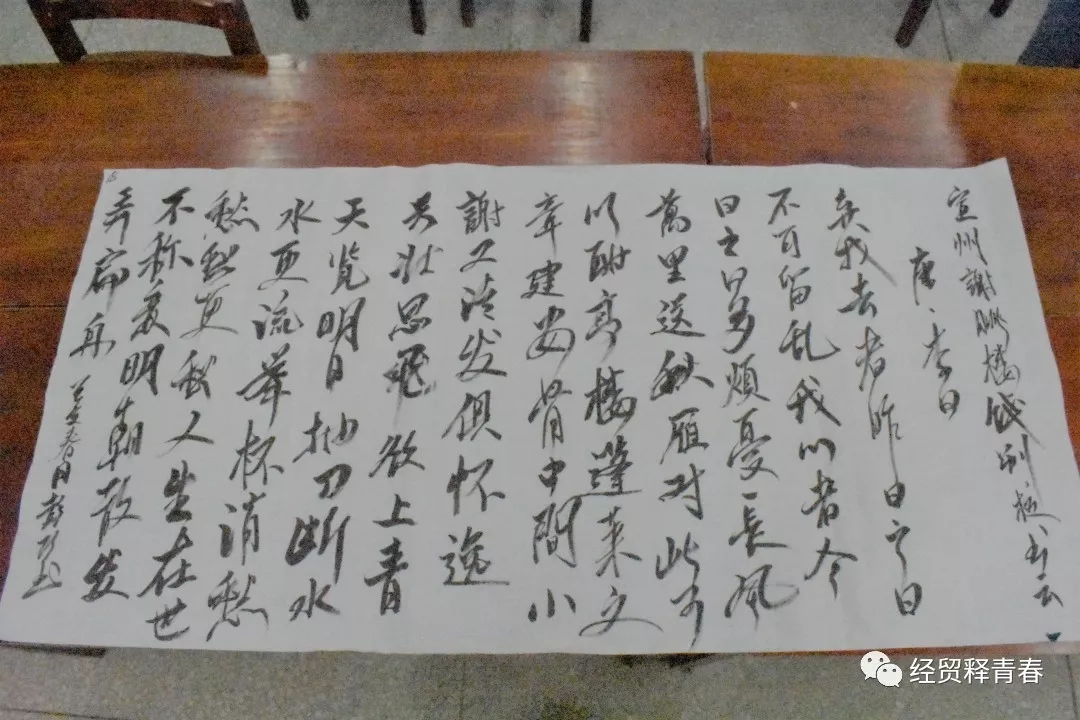 宣州謝朓樓餞别校书云
唐、李白
弃我去者昨日之日
不可留乱我心者今
日之日多煩憂長风
萬里送秋雁对此可
以酣高樓蓬莱文
章建安骨中間小
謝又清发俱怀逸
兴壮思飛欲上青
天览明日抽刀断水
水更流举杯消愁
愁愁更愁人生在世
不称意明朝散发
弄扁舟
经贸释青春